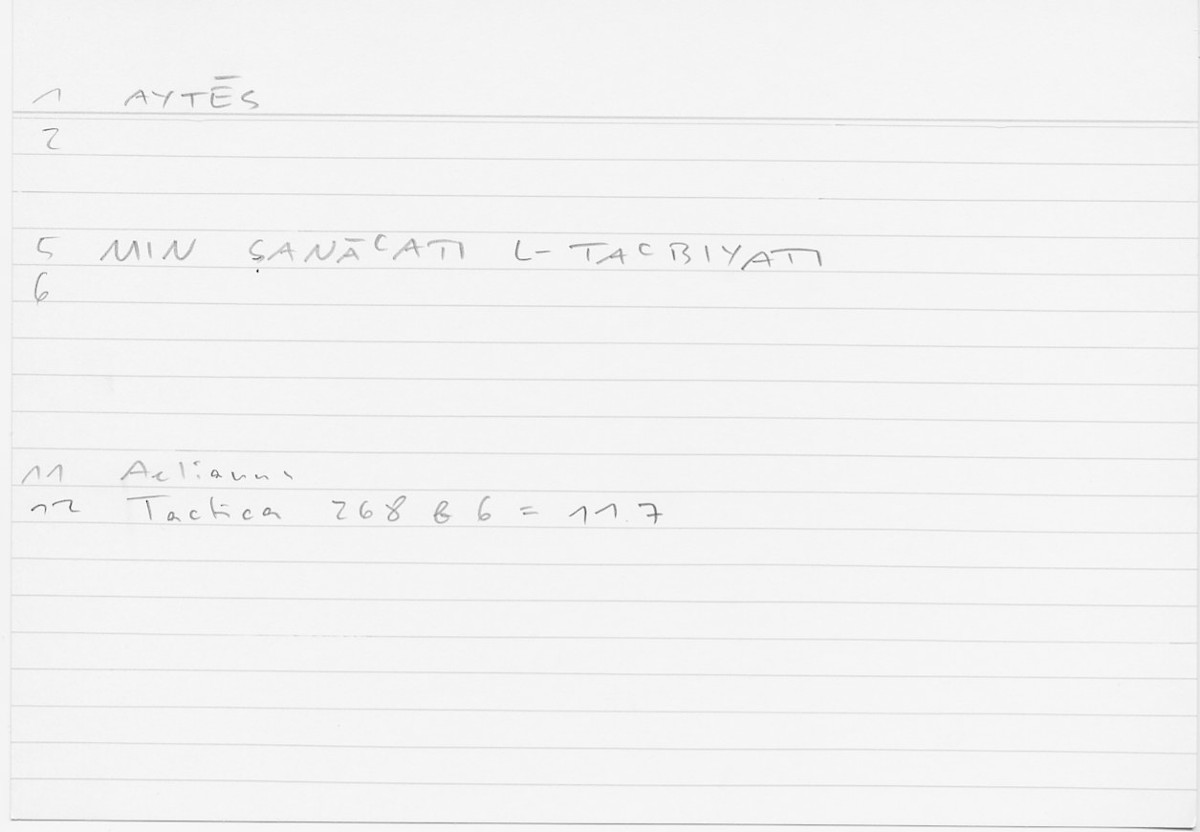 1 AYTĒS
2
5 MIN ṢANĀCATI L-TACBIYATI
6
11 Aelianus
12 Tactica 268 b 6 = 11.7